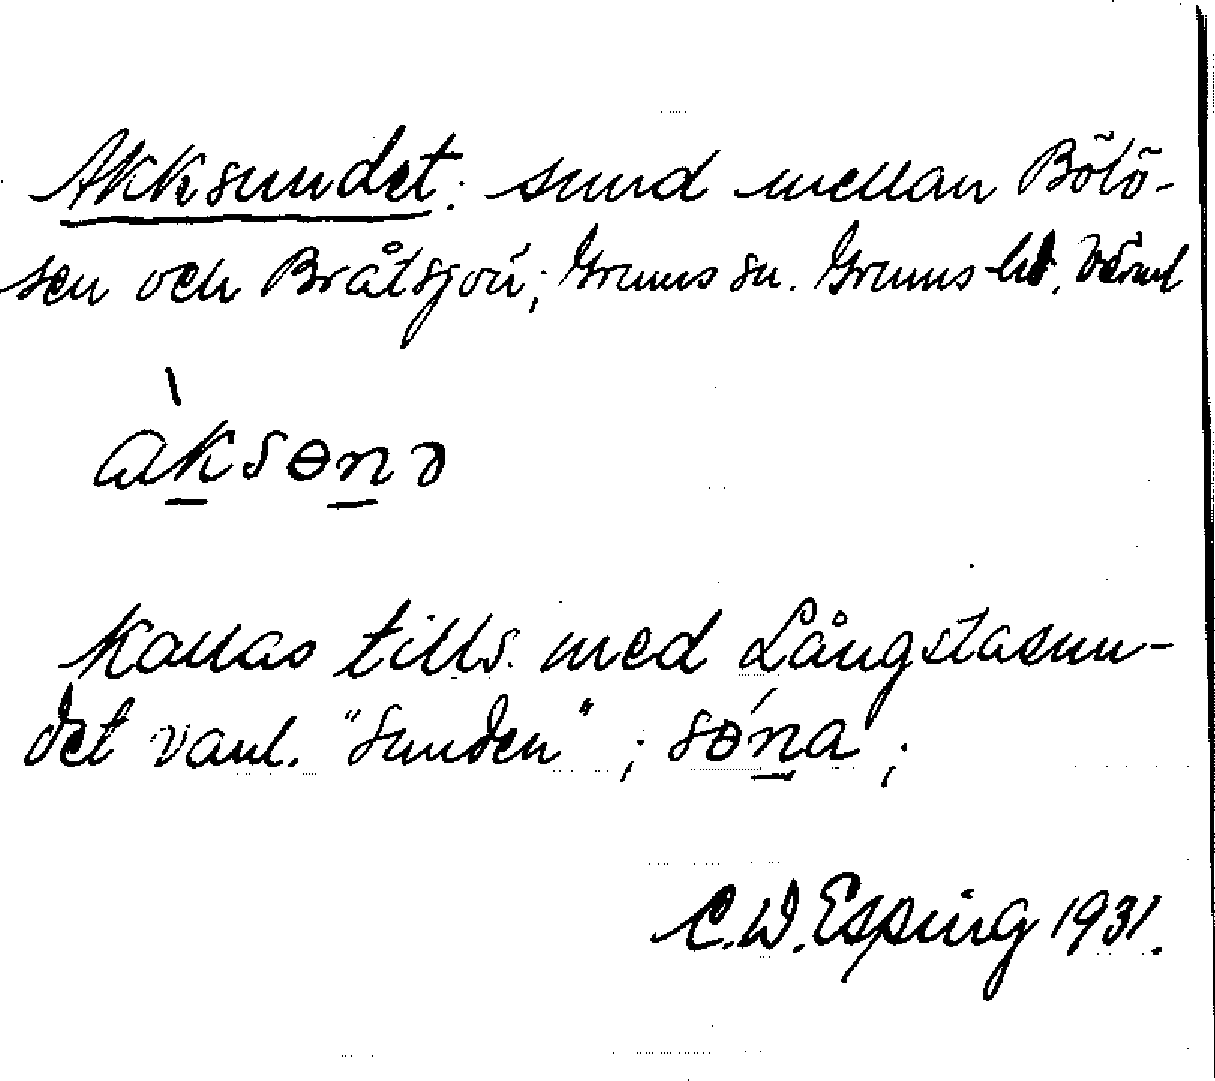 Akksundet: sund mellan Bölö-
sen och Bråtsjön; Grums sn. Grums hd. Värml
àksɵnə
Kallas tills. med Långstasun-
det vanl. "Sunden"; sɵ́na;
C. W. Esping 1931.